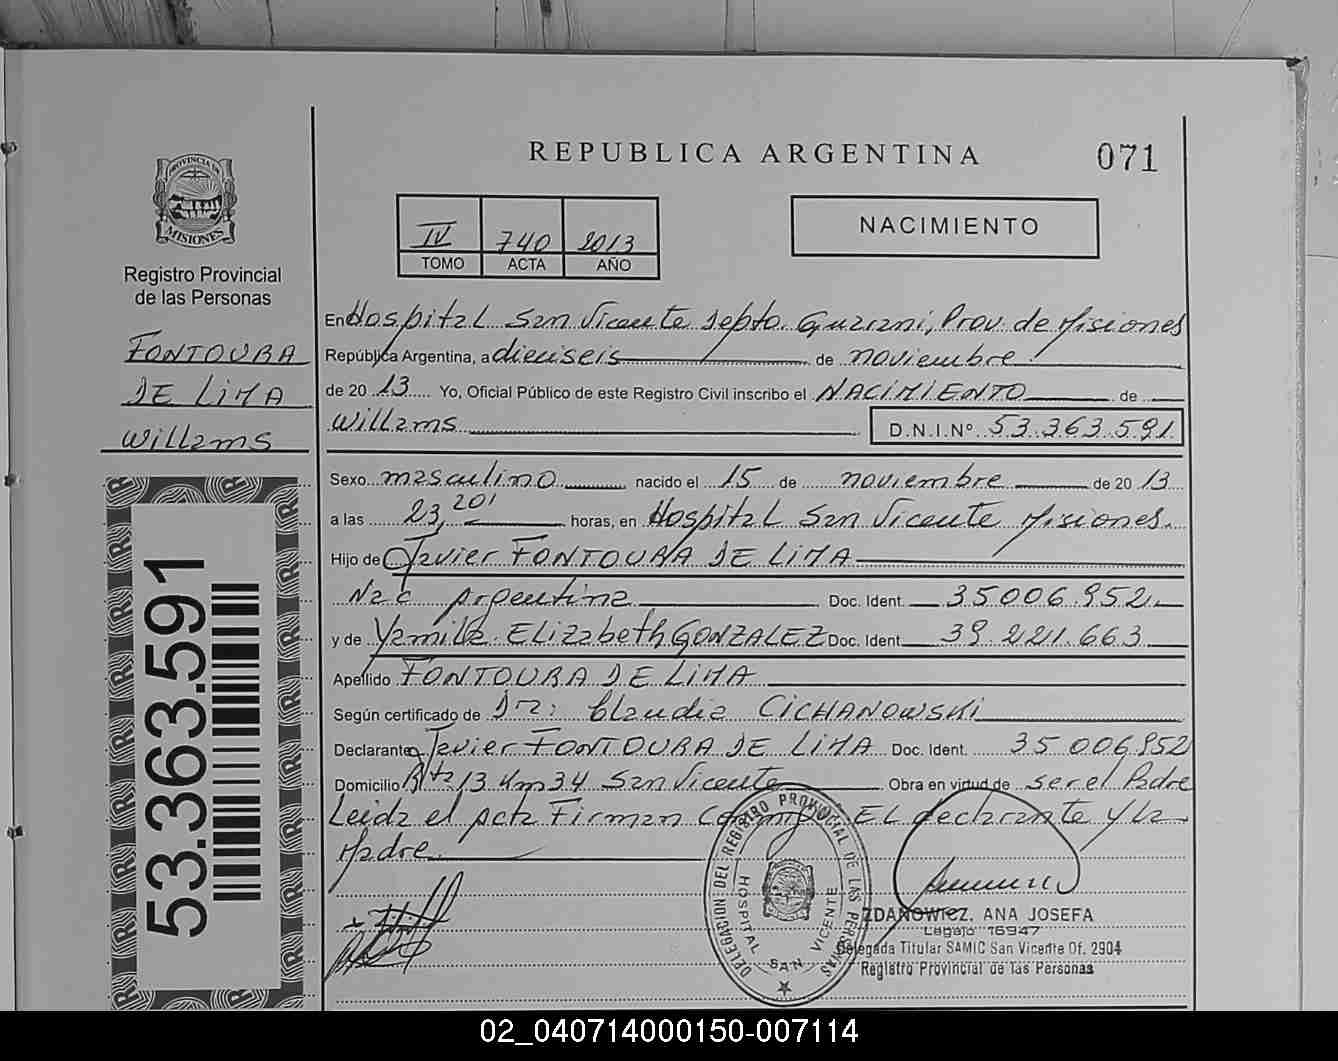 REPUBLICA ARGENTINA
071
PROVINCIA DE
MISIONES
Registro Provincial
de las Personas
FONTOURA
DE LIMA
Willams
53.363.591
IV 740 2013
TOMO ACTA AÑO
NACIMIENTO
En Hospital San Vicente Depto. Guarani, Prov. de Misiones
República Argentina, a dieciseis de noviembre
de 20 13 Yo, Oficial Público de este Registro Civil inscribo el NACIMIENTO de
Willams D.N.I.N° 53.363.591
Sexo masculino nacido el 15 de noviembre de 20 13
a las 23,20' horas, en Hospital San Vicente Misiones.
Hijo de Javier FONTOURA DE LIMA
Nac Argentina Doc. Ident. 35006.952
y de Yamila Elizabeth GONZALEZ Doc. Ident. 39.221.663
Apellido FONTOURA DE LIMA
Según certificado de Dra: Claudia CICHANOWSKI
Declarante Javier FONTOURA DE LIMA Doc. Ident. 35 006952
Domicilio Rta 13 Km 34 San Vicente Obra en virtud de ser el Padre
Leida el Acta Firman Conmigo El declarante y la
Madre.
DELEGACION DEL REGISTRO PROVINCIAL DE LAS PERSONAS
HOSPITAL SAN VICENTE
ZDANOWICZ, ANA JOSEFA
Legajo 16947
Delegada Titular SAMIC San Vicente Of. 2904
Registro Provincial de las Personas
02_040714000150-007114